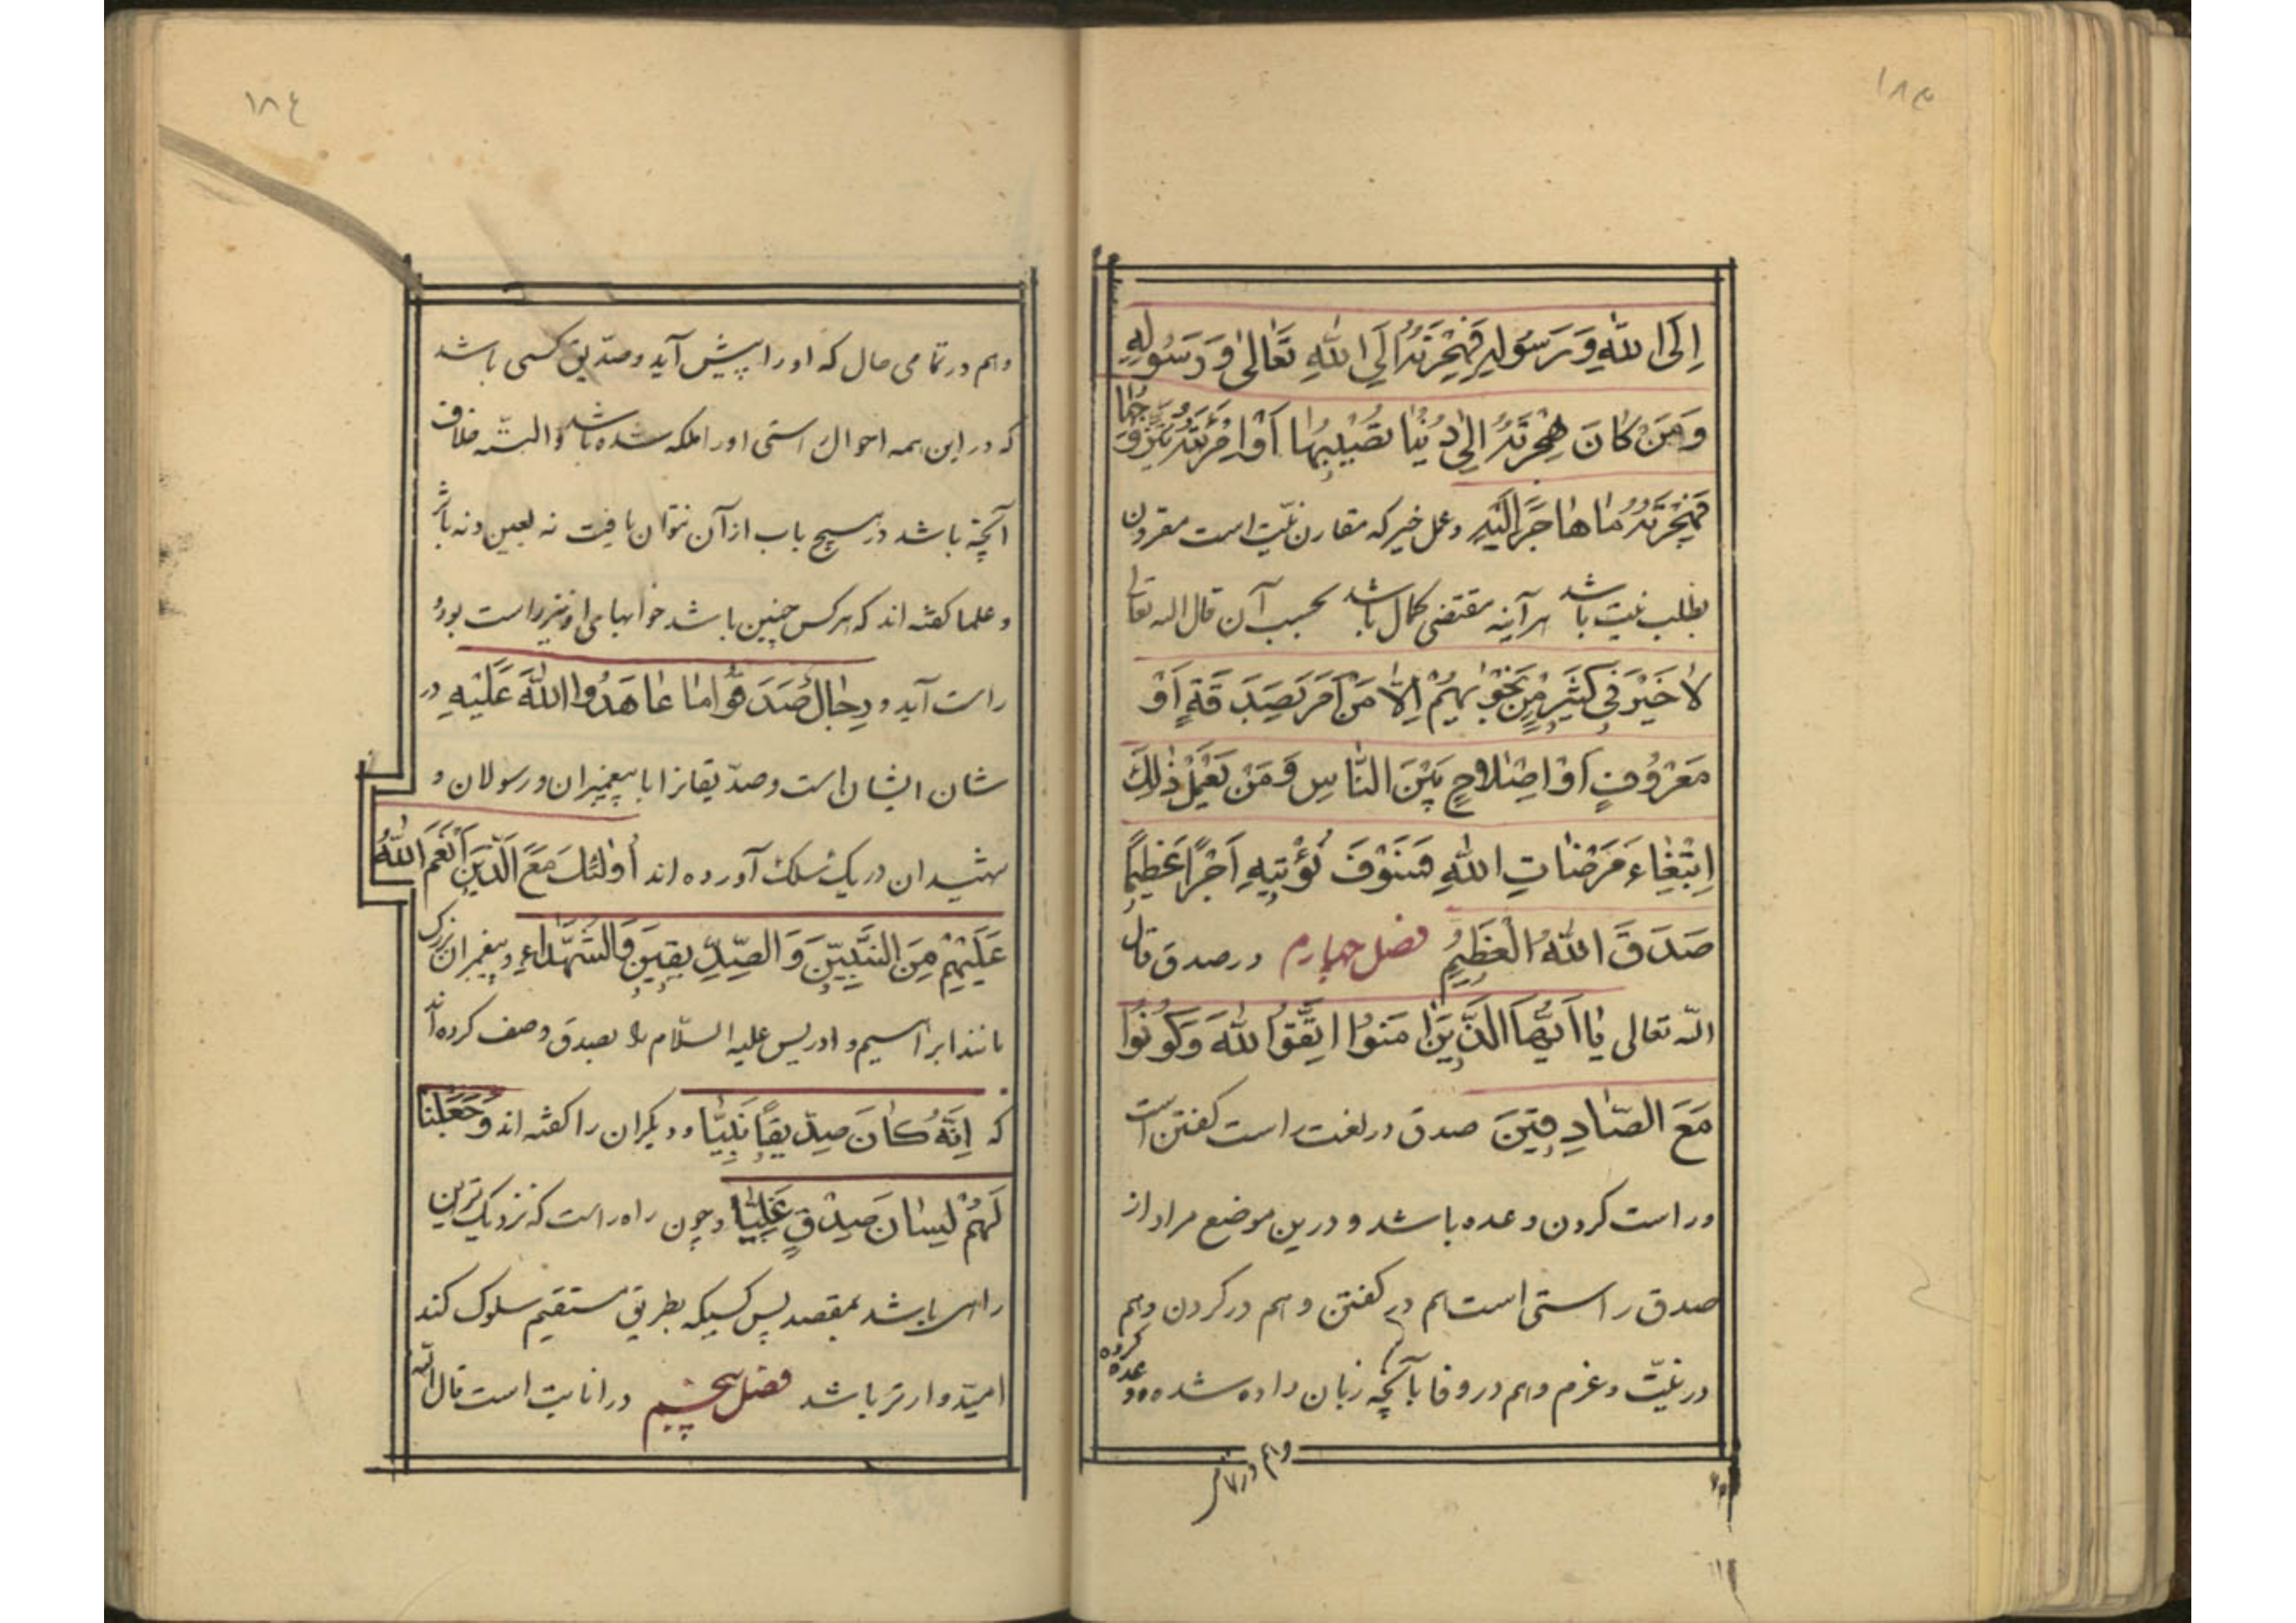 ١٨٣
اِلَى اللّٰهِ وَ رَسُولِهِ فَهِجْرَتُهُ اِلَى اللّٰهِ تَعَالىٰ وَ رَسُولِهِ
وَ مَنْ كَانَ هِجْرَتُهُ اِلىٰ دُنْيٰا تُصيٖبُهٰا اَوْ اِمْرَئَةٍ يَتَزَوَّجُهٰا
فَهِجْرَتُهُ مٰا هٰاجَرَ اِلَيْهِ و عمل خیر که مقارن نیّت است مقرون
بطلب نیت باشد هرآینه مقتضی کمال باشد بحسب آن قال الله تعالی
لاٰ خَيْرَ فىٖ كَثيٖرٍ مِنْ نَجْوٰيهُمْ اِلاّٰ مَنْ اَمَرَ بِصَدَقَةٍ اَوْ
مَعْرُوفٍ اَوْ اِصْلاٰحٍ بَيْنَ النّٰاسِ وَ مَنْ يَفْعَلْ ذٰلِكَ
اِبْتِغٰاءَ مَرْضٰاتِ اللّٰهِ فَسَوْفَ نُؤْتيٖهِ اَجْرًا عَظيٖمًا
صَدَقَ اللّٰهُ الْعَظيٖمُ فصل چهارم در صدق قال
اللّه تعالی يٰا اَيُّهَا الَّذيٖنَ اٰمَنُوا اتَّقُوا اللّٰهَ وَ كُونُوا
مَعَ الصّٰادِقيٖنَ صدق در لغت راست کفتن است
و راست کردن وعده باشد و درین موضع مراد از
صدق راستی است هم در کفتن و هم در کردن و هم
در نیّت و عزم و هم در وفا بآنچه زبان داده شده و وعده کرده
و هم در تمامی
١٨٤
و هم در تمامی حال که او را پیش آید و صدّیق کسی باشد
که در این همه احوال راستی او را ملکه شده باشد و البتّه خلاف
آنچه باشد در هیچ باب از آن نتوان یافت نه بعین و نه باثر
و علما کفته اند که هرکس چنین باشد خوابهای او نیز راست بود و
راست آید و رِجٰالٌ صَدَقُوا مٰا عٰاهَدُوا اللّٰهَ عَلَيْهِ در
شان ایشان است و صدّیقانرا با پیغمبران و رسولان و
شهیدان در یک سلک آورده اند اُولٰئِكَ مَعَ الَّذيٖنَ اَنْعَمَ اللّٰهُ
عَلَيْهِمْ مِنَ النَّبِيّيٖنَ وَ الصِّدّيٖقيٖنَ وَ الشُّهَدٰاءِ و پیغمبران بزرک
مانند ابراهیم و ادریس علیه السّلام را بصدق وصف کرده اند
که اِنَّهُ كٰانَ صِدّيٖقًا نَبِيّٰا و دیکران را کفته اند وَ جَعَلْنٰا
لَهُمْ لِسٰانَ صِدْقٍ عَلِيّٰا و چون راه راست که نزدیک ترین
راهی باشد بمقصد پس کسیکه بطریق مستقیم سلوک کند
امیّدوارتر باشد فصل پنجم در انابت است قال اللّه